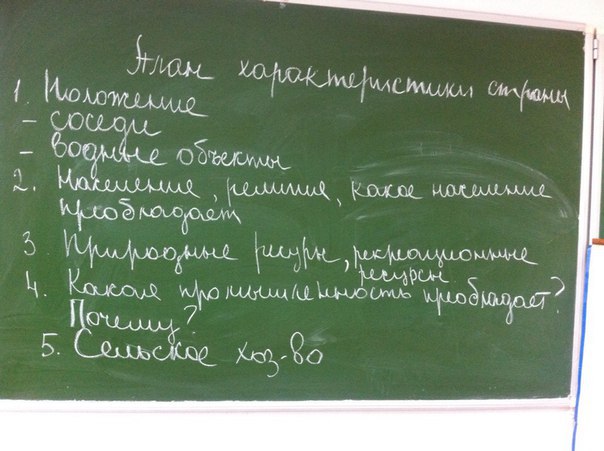 План характеристики страны
1. Положение
- соседи
- водные объекты
2. Население, религия, какое население
преобладает
3 Природные ресурсы, рекреационные
ресурсы
4. Какая промышленность преобладает?
Почему?
5. Сельское хоз-во